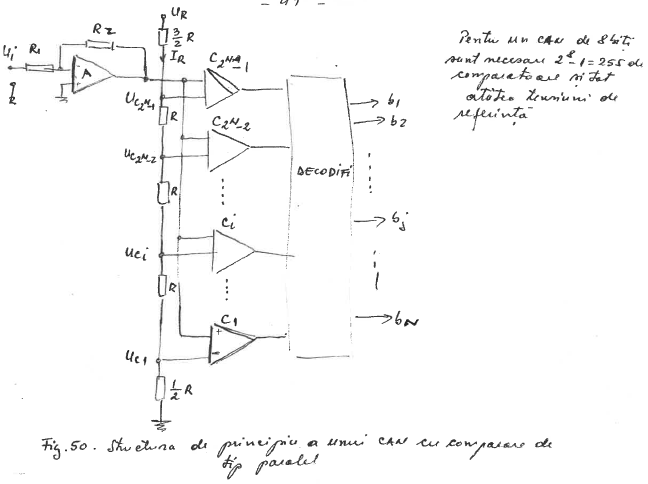 - 47 -
UR
3/2 R
IR
Ui
R1
R2
A
UC2N-1
R
C2N-1
C2N-2
UC2N-2
R
UCi
R
Ci
UC1
C1
1/2 R
DECODIFI
b1
b2
bj
bN
Pentru un CAN de 8 biți
sunt necesare 2^8-1=255 de
comparatoare și tot
atâtea tensiuni de
referință
Fig.50. Structura de principiu a unui CAN cu comparare de
tip paralel